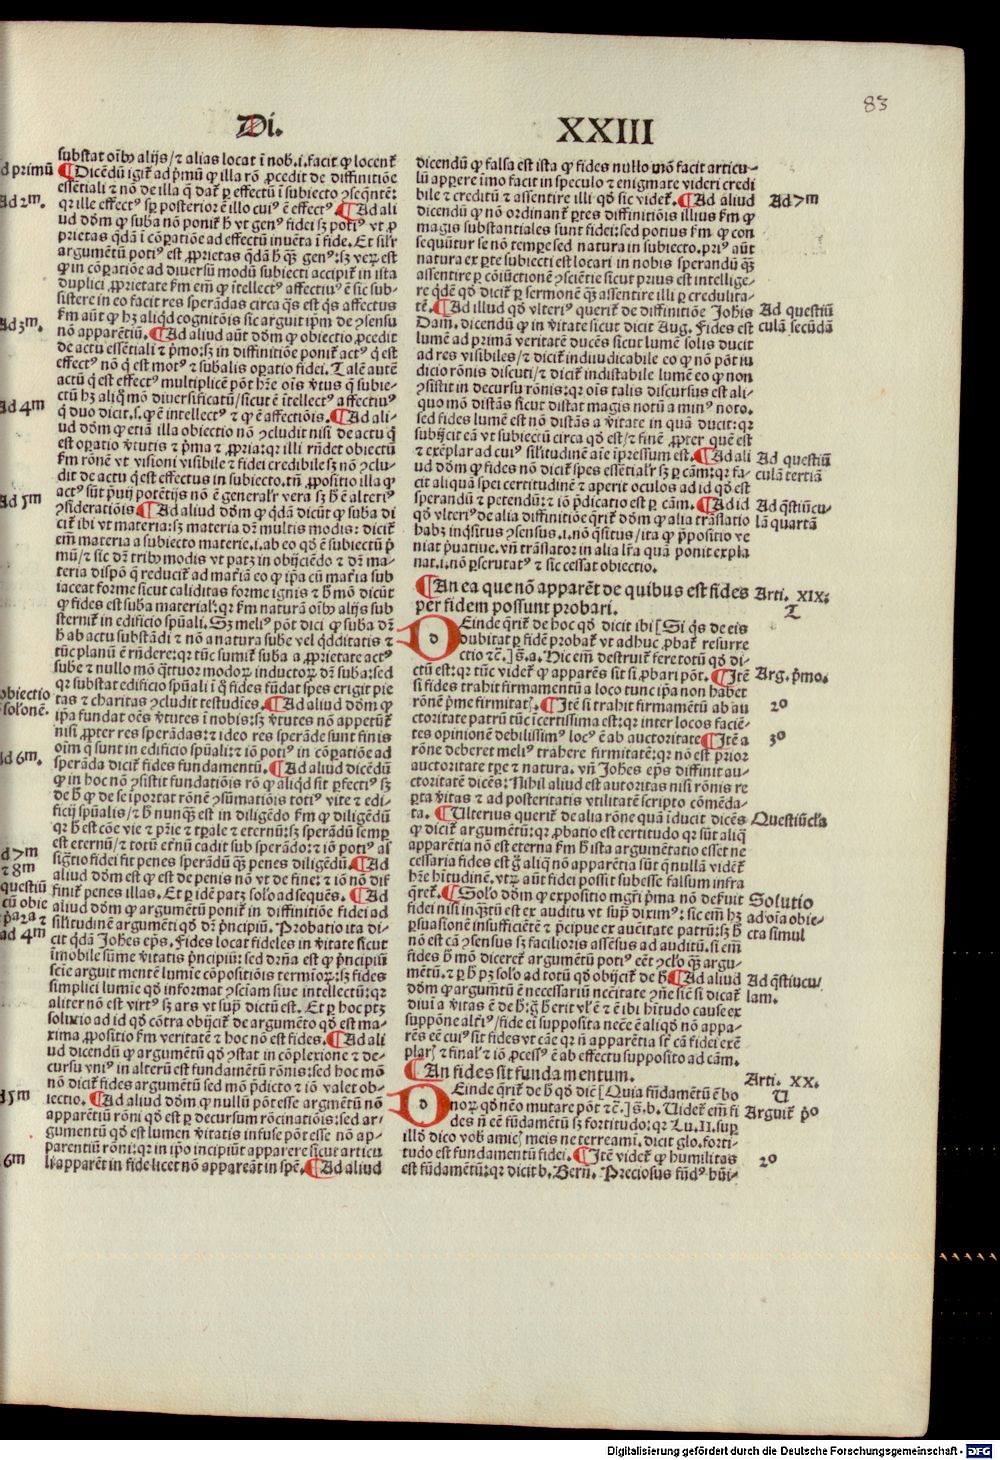 83
Di. XXIII
substat oībꝫ alijs/⁊ alias locat ī nob̄.i.facit ꝙ locent᷑
d primū ¶Dicēdū igit᷑ ad p̄mū ꝙ illa rō ꝓcedit de diffinitiōe
essētiali ⁊ nō de illa q̄ dat᷑ ꝑ effectū ī subiecto ꝯseq̄ntē:
Ad 2m. qꝛ ille effectꝰ sp̄ posterior ē illo cuiꝰ ē effectꝰ ¶Ad ali
ud dōm ꝙ suba nō ponit᷑ h̄ vt genꝰ fidei sꝫ potiꝰ vt ꝓ
prietas q̄dā ī cōꝑatiōe ad effectū inuēta ī fide. Et sil'r
argumētū potiꝰ est ꝓprietas q̄dā h̄ qꝫ genꝰ:sꝫ veꝝ est
ꝙ in cōꝑatiōe ad diuersū modū subiecti accipit᷑ in ista
duplici ꝓprietate km̄ em̄ ꝙ ītellectꝰ affectiuꝰ ē sic sub-
sistere in eo facit res sperādas circa q̄s est q̄s affectus
Ad 3m. km̄ aūt ꝙ hꝫ aliqd̄ cognitōis sic arguit ip̄m de ꝯsensu
nō apparētiū. ¶Ad aliud aūt dōm ꝙ obiectio ꝓcedit
de actu essētiali ⁊ p̄mo:sꝫ in diffinitiōe ponit᷑ actꝰ q̄ est
effectꝰ nō q̄ est motꝰ ⁊ sub̄alis oꝑatio fidei. Talē autē
actū q̄ est effectꝰ multiplicē pōt hr̄e oīs v̄tus q̄ subie-
ctū hꝫ aliq̄ mō diuersificatū/sicut ē ītellectꝰ affectiuꝰ
Ad 4m q̄ duo dicit.s.ꝙ ē intellectꝰ ⁊ ꝙ ē affectiōis. ¶Ad ali-
ud dōm ꝙ etiā illa obiectio nō ꝯcludit nisi de actu q̄
est oꝑatio v̄tutis ⁊ p̄ma ⁊ ꝓpria:qꝛ illi rn̄det obiectū
km̄ rōnē vt visioni visibile ⁊ fidei credibile sꝫ nō ꝯclu-
dit de actu q̄ est effectus in subiecto.tn̄ ꝓpositio illa ꝙ
actꝰ sūt p̄uij potētijs nō ē general'r vera sꝫ h̄ ē alteriꝰ
Ad 5m ꝯsideratiōis ¶Ad aliud dōm ꝙ q̄dā dicūt ꝙ suba di
cit᷑ ibi vt materia:sꝫ materia dr̄ multis modis: dicit᷑
em̄ materia a subiecto materie.i.ab eo qd̄ ē subiectū p̄
mū/⁊ sic dr̄ tribꝫ modis vt patꝫ in obijciēdo ⁊ dr̄ ma-
teria dispō q̄ reducit᷑ ad mat'iā eo ꝙ ip̄a cū mat'ia sub
iaceat forme sicut caliditas forme ignis ⁊ h̄ mō dicūt
ꝙ fides est suba material':qꝛ km̄ naturā oībꝫ alijs sub
sternit᷑ in edificio spūali. Sꝫ meliꝰ pōt dici ꝙ suba dr̄
h̄ ab actu substādi ⁊ nō a natura sube vel q̄dditatis ⁊
tūc planū ē rn̄dere:qꝛ tūc sumit᷑ suba a ꝓprietate actꝰ
sube ⁊ nullo mō q̄ttuor modoꝝ inductoꝝ dr̄ suba:sed
qꝛ substat edificio spūali ī q̄ fides fūdat spes erigit pie
obiectio tas ⁊ charitas ꝯcludit testudies. ¶Ad aliud dōm ꝙ
solonē. ip̄a fundat oēs v̄tutes ī nobis:sꝫ v̄tutes nō appetūt᷑
nisi ꝓpter res sperādas:⁊ ideo res sperāde sunt finis
oīm q̄ sunt in edificio spūali:⁊ iō potiꝰ in cōꝑatiōe ad
Ad 6m. sperāda dicit᷑ fides fundamētū. ¶Ad aliud dicēdū
ꝙ in hoc nō ꝯsistit fundatiōis rō ꝙ aliqd̄ sit ꝑfectiꝰ sꝫ
de h̄ ꝙ de se iportat rōnē ꝯsūmatiōis totiꝰ vite ⁊ edi-
ficij spūalis/⁊ h̄ nunqꝫ est in diligēdo km̄ ꝙ diligēdū
qꝛ h̄ est cōe vie ⁊ pr̄ie ⁊ tꝑale ⁊ eternū:sꝫ sperādū semꝑ
est eternū/⁊ totū et'nū cadit sub sperādo:⁊ iō potiꝰ as
d 7m siḡtio fidei fit penes sperādū qꝫ penes diligēdū. ¶Ad
⁊ 8m aliud dōm est ꝙ est de penis nō vt de fine:⁊ iō nō dif
questiū finit᷑ penes illas. Et ꝑ idē patꝫ solo ad seq̄ēs. ¶Ad
cū obie aliud dōm ꝙ argumētū ponit᷑ in diffinitiōe fidei ad
p̄ara ⁊ silitudinē argumēti qd̄ dr̄ p̄ncipiū. Probatio ita di-
ad 4m cit q̄dā Johes ep̄s. Fides locat fideles in v̄itate sicut
īmobile sūme v̄itatis p̄ncipiū:sed dr̄na est ꝙ p̄ncipiū
scīe arguit mentē lumīe cōpositiōis termioꝝ:sꝫ fides
simplici lumīe qd̄ informat ꝯsciam siue intellectū:qꝛ
aliter nō est virtꝰ sꝫ ars vt sup̄ dictū est. Et ꝑ hoc ptꝫ
solutio ad id qd̄ cōtra obijcit᷑ de argumēto qd̄ est ma-
xima ꝓpositio km̄ veritatē ⁊ hoc nō est fides. ¶Ad ali
ud dicendū ꝙ argumētū qd̄ ꝯstat in cōplexione ⁊ de-
cursu vniꝰ in alterū est fundamētū rōnis:sed hoc mō
nō dicit᷑ fides argumētū sed mō p̄dicto ⁊ iō valet ob-
5m iectio. ¶Ad aliud dōm ꝙ nullū pōt esse argmētū nō
apparētiū rōni qd̄ est ꝑ decursum rōcinatiōis:sed ar-
gumentū qd̄ est lumen v̄itatis infuse pōt esse nō ap-
parentiū rōni:qꝛ in ip̄o incipiūt apparere sicut articu
6m li apparēt in fide licet nō appareāt in spē. ¶Ad aliud
dicendū ꝙ falsa est ista ꝙ fides nullo mō facit articu-
lū apꝑere īmo facit in speculo ⁊ enigmate videri credi
bile ⁊ creditū ⁊ assentire illi qd̄ sic videt᷑. ¶Ad aliud Ad 7m
dicendū ꝙ nō ordinant᷑ ꝑtes diffinitiōis illius km̄ ꝙ
magis substantiales sunt fidei:sed potius km̄ ꝙ con
sequūtur se nō tempe sed natura in subiecto.priꝰ aūt
natura ex ꝑte subiecti est locari in nobis sperandū qꝫ
assentire ꝑ cōiūctionē ꝯsciētie sicut prius est intellige-
re q̄dē qd̄ dicit᷑ ꝑ sermonē qꝫ assentire illi ꝑ credulita-
tē. ¶Ad illud qd̄ vlteriꝰ querit᷑ de diffinitiōe Joh̄is Ad questiū
Dam. dicendū ꝙ in v̄itate sicut dicit Aug. Fides est culā secūdā
lumē ad primā veritatē ducēs sicut lumē solis ducit
ad res visibiles/⁊ dicit᷑ indiiudicabile eo ꝙ nō pōt iu
dicio rōnis discuti/⁊ dicit᷑ indistabile lumē eo ꝙ non
ꝯsistit in decursu rōnis:qꝛ oīs talis discursus est ali-
quo mō distās sicut distat magis notū a minꝰ noto.
sed fides lumē est nō distās a v̄itate in quā ducit:qꝛ
subijcit eā vt subiectū circa qd̄ est/⁊ finē ꝓpter quē est
⁊ exēplar ad cuiꝰ silitudinē aīe īpressum est. ¶Ad ali Ad questiū
ud dōm ꝙ fides nō dicit᷑ spes essential'r sꝫ ꝑ cām:qꝛ fa- culā tertiā
cit aliquā spei certitudinē ⁊ aperit oculos ad id qd̄ est
sperandū ⁊ petendū:⁊ iō p̄dicatio est ꝑ cām. ¶Ad id Ad q̄stiūcu-
qd̄ vlteriꝰ de alia diffinitiōe q̄rit᷑ dōm ꝙ alia trāslatio lā quartā
habꝫ inq̄situs ꝯsensus.i.nō q̄situs/ita ꝙ p̄positio ve
niat p̄uatiue.vn̄ trāslator in alia lr̄a quā ponit expla
nat.i.nō ꝑscrutatꝰ ⁊ sic cessat obiectio.
¶An ea que nō apparēt de quibus est fides Arti. XIX.
per fidem possunt probari. T
Deinde q̄rit᷑ de hoc qd̄ dicit ibi [Si q̄s de eis
dubitat ꝑ fidē probat᷑ vt adhuc ꝓbat᷑ resurre
ctio ⁊c̄.]§.a.Hic em̄ destruit᷑ fere totū qd̄ di-
ctū est:qꝛ tūc videt᷑ ꝙ apparēs sit si ꝓbari pōt. ¶Itē Arg. p̄mo.
si fides trahit firmamentū a loco tunc ip̄a non habet
rōnē p̄me firmitatꝭ. ¶Itē si trahit firmamētū ab au 2o
ctoritate patrū tūc īcertissima est:qꝛ inter locos faciē-
tes opinionē debilissimꝰ locꝰ ē ab auctoritate ¶Itē a 3o
rōne deberet meliꝰ trahere firmitatē:qꝛ nō est prior
auctoritate tꝑe ⁊ natura. vn̄ Joh̄es ep̄s diffinit au-
ctoritatē dicēs:Nihil aliud est autoritas nisi rōnis re
ꝑta v̄itas ⁊ ad posteritatis vtilitatē scripto cōmēda-
ta. ¶Ulterius querit᷑ de alia rōne quā iducit dicēs Questiūcl'a
ꝙ dicit᷑ argumētū:qꝛ ꝓbatio est certitudo qꝛ sūt aliq̄
apparētia nō est eterna km̄ h̄ ista argumētatio esset ne
cessaria fides est g̊ aliq̄ nō apparētia sūt q̄ nullā videt᷑
hr̄e hītudinē.vtꝝ aūt fidei possit subesse falsum infra
q̄ret᷑. ¶Sol'o dōm ꝙ expositio mgr̄i p̄ma nō deẜuit Solutio
fidei nisi inqꝫtū est ex auditu vt sup̄ diximꝰ: sic em̄ hꝫ ad oīa obie-
ꝑsuasionē insufficiētē ⁊ p̄cipue ex auc̄itate patrū:sꝫ h̄ cta simul
nō est cā ꝯsensus sꝫ facilioris assēsus ad auditū.si em̄
fides h̄ mō diceret᷑ argumētū potiꝰ eēt ꝯcl'o qꝫ argu-
mētū.⁊ ꝑ h̄ pꝫ sol'o ad totū qd̄ obijcit᷑ de h̄ ¶Ad aliud Ad q̄stiucu/
dōm ꝙ argumētū ē necessariū nc̄eitate ꝯn̄e siē si dicat᷑ lam.
diui a v̄itas ē de h̄:g̊ h̄ erit vl'e ⁊ ē ibi hītudo cause ex
suppōne al'riꝰ/fide ei supposita nec̄e ē aliqd̄ nō appa-
rēs eē cuiꝰ sit fides vt cāe qꝛ n̄ apparētia st̄ cā fidei exē
plar' ⁊ final' ⁊ iō ꝓcessꝰ ē ab effectu supposito ad cām.
¶An fides sit fundamentum. Arti. XX.
Deinde q̄rit᷑ de h̄ qd̄ diē [Quia fūdamētū ē bo U
noꝝ qd̄ nēo mutare pōt ⁊c̄.]§.b. Uidet᷑ em̄ fi Arguit᷑ p̄o
des n̄ eē fūdamētū sꝫ fortitudo:qꝛ Lu. II. suꝑ
illd̄ dico vob̄ amicꝭ meis ne terreamī.dicit glo.forti-
tudo est fundamentū fidei. ¶Itē videt᷑ ꝙ humilitas 2o
est fūdamētū:qꝛ dicit b. Bern̄. Preciosus fūd̄ꝰ hūi-
Digitalisierung gefördert durch die Deutsche Forschungsgemeinschaft - DFG